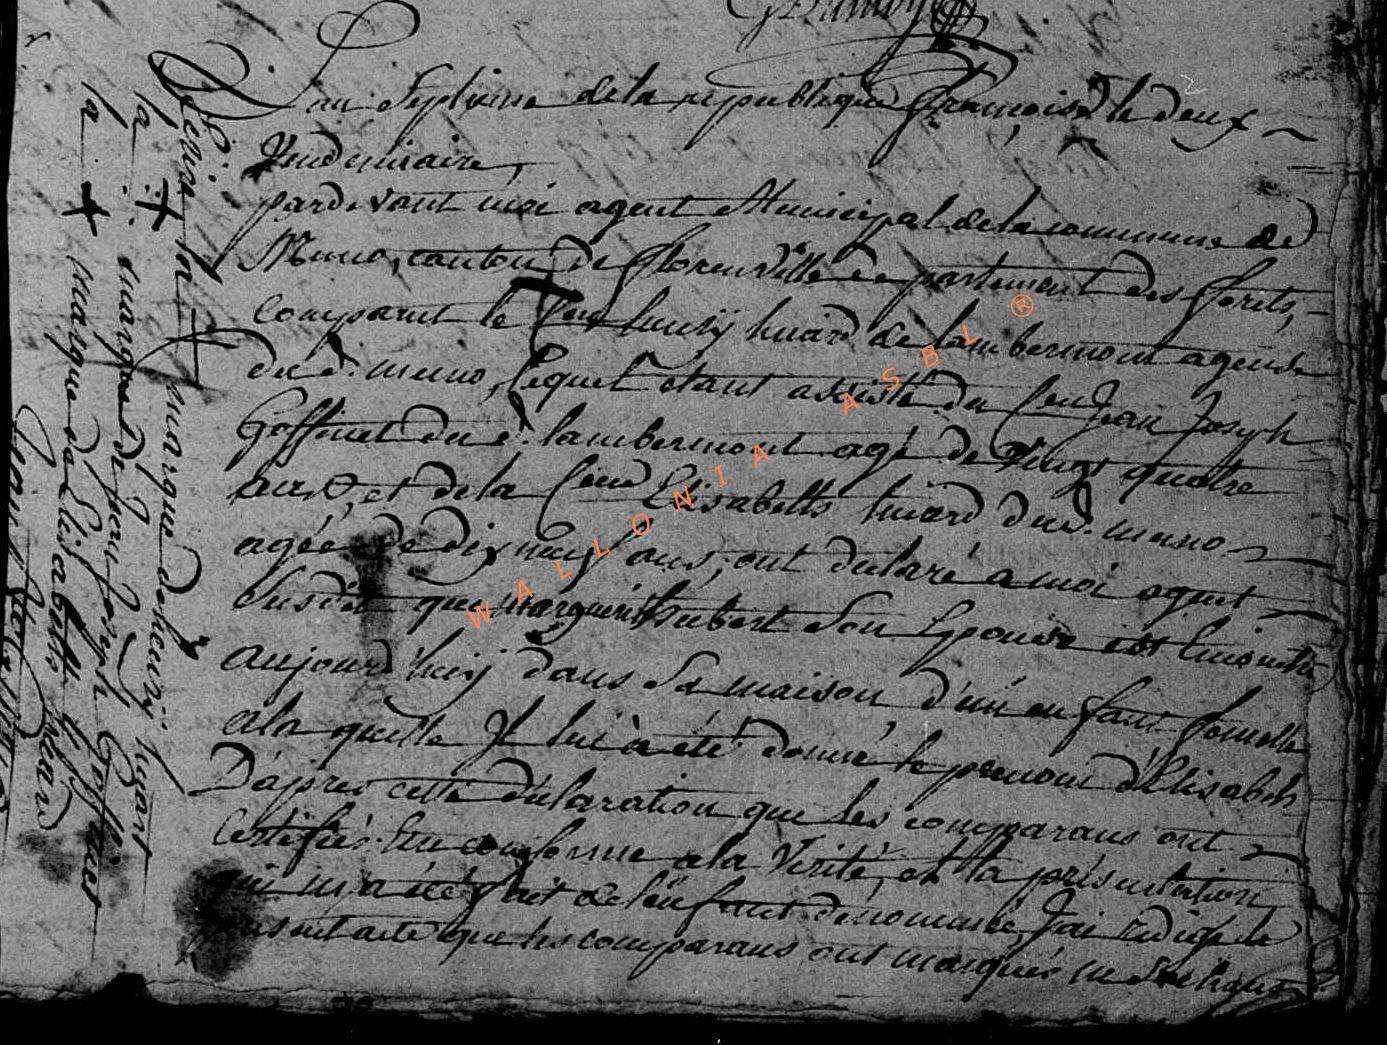 L'an Septieme de la republique françoise le deux
Vendemiaire,
pardevant moi agent Municipal de la commune de
Muno, canton de florenville departement des forets,
comparut le Cen henrÿ huard de lambermont agence
du d. muno, lequel étant assisté du Cen Jean Joseph
Goffinet du d. lambermont agé de vingt quatre
ans, et de la Cene Elisabeth huard du d. muno
agée de dix neuf ans, ont déclaré a moi agent
susdit que marguerit hubert Son Epouse est accouchée
aujourd'huÿ dans Sa maison d'un enfant femelle
a la quelle Il lui à été donné le prenom d'Elisabeth
D'apres cette déclaration que les comparans ont
Certifiés être conforme a la Verité, et la présentation
qui m'a été fait de l'enfant dénommée, J'ai redigé le
present acte que les comparans ont marqués ne Sachant
Decrire la + marque de henrÿ huart
la + marque de jean joseph Goffinet
la + marque de Elisabeth huard
WALLONIA ASBL ®